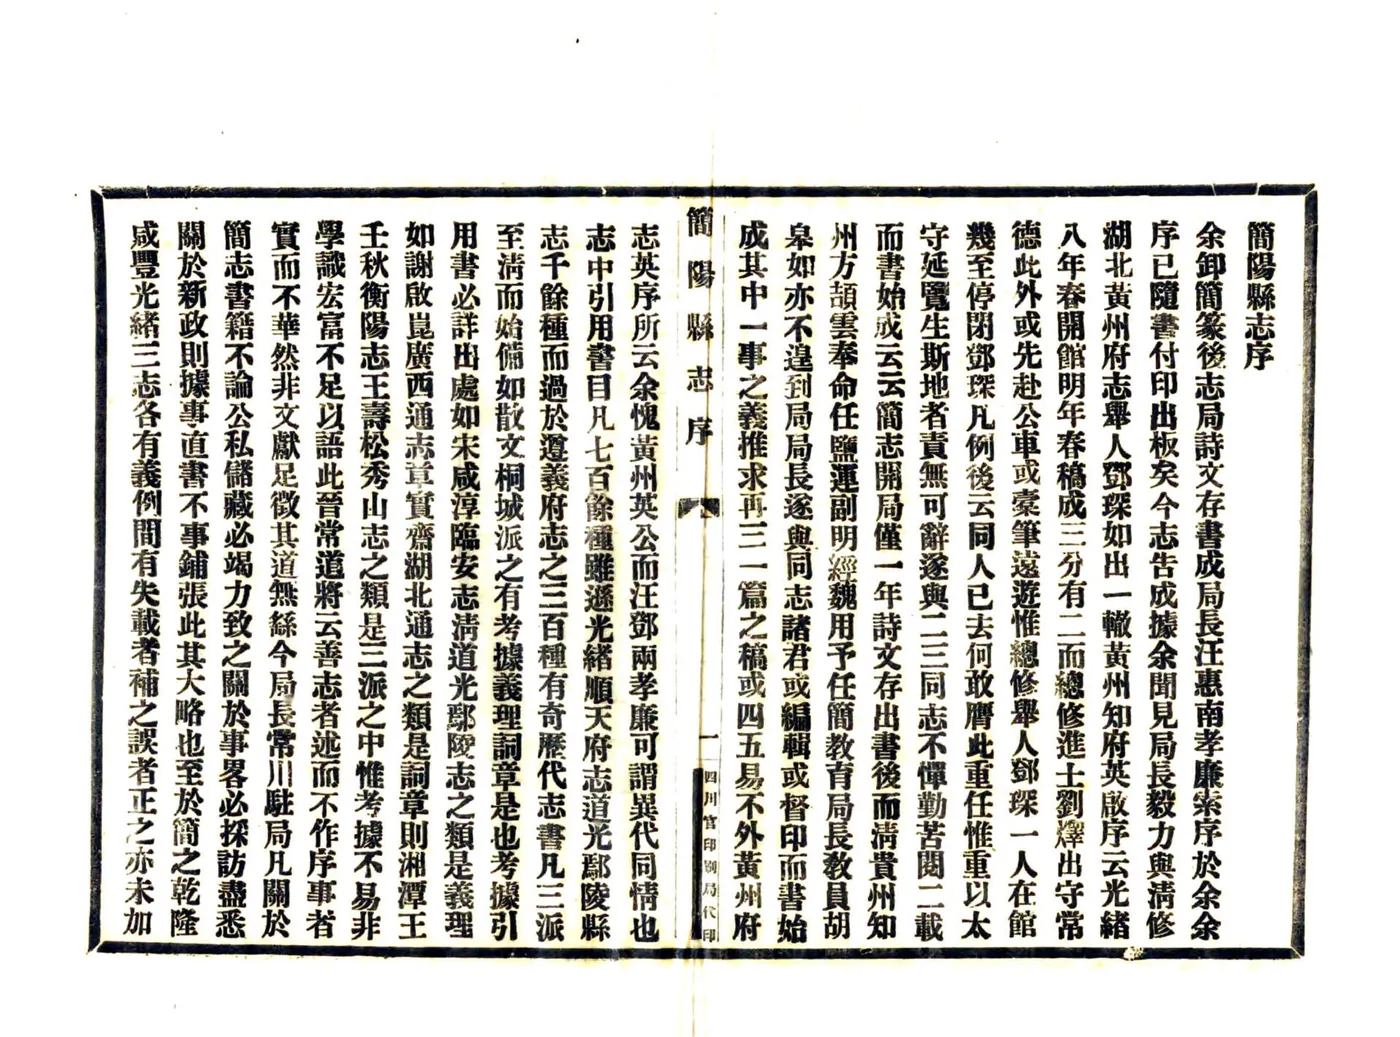 簡陽縣志序
余卸簡篆後志局詩文存書成局長汪惠南孝廉索序於余余
序已隨書付印出板矣今志告成據余聞見局長毅力與淸修
湖北黃州府志舉人鄧琛如出一轍黃州知府英啟序云光緒
八年春開館明年春稿成三分有二而總修進士劉燡出守常
德此外或先赴公車或橐筆遠遊惟總修舉人鄧琛一人在館
幾至停閉鄧琛凡例後云同人已去何敢膺此重任惟重以太
守延覽生斯地者責無可辭遂與二三同志不憚勤苦閱二載
而書始成云云簡志開局僅一年詩文存出書後而淸貴州知
州方頡雲奉命任鹽運副明經魏用予任簡教育局長教員胡
皋如亦不遑到局局長遂與同志諸君或編輯或督印而書始
成其中一事之義推求再三一篇之稿或四五易不外黃州府
簡陽縣志序
一
四川官印刷局代印
志英序所云余愧黃州英公而汪鄧兩孝廉可謂異代同情也
志中引用書目凡七百餘種雖遜光緒順天府志道光鄢陵縣
志千餘種而過於遵義府志之三百種有奇歷代志書凡三派
至淸而始備如散文桐城派之有考據義理詞章是也考據引
用書必詳出處如宋咸淳臨安志淸道光鄢陵志之類是義理
如謝啟崑廣西通志章實齋湖北通志之類是詞章則湘潭王
壬秋衡陽志王壽松秀山志之類是三派之中惟考據不易非
學識宏富不足以語此晉常道將云善志者述而不作序事者
實而不華然非文獻足徵其道無繇今局長常川駐局凡關於
簡志書籍不論公私儲藏必竭力致之關於事畧必採訪盡悉
關於新政則據事直書不事鋪張此其大略也至於簡之乾隆
咸豐光緒三志各有義例間有失載者補之誤者正之亦未加